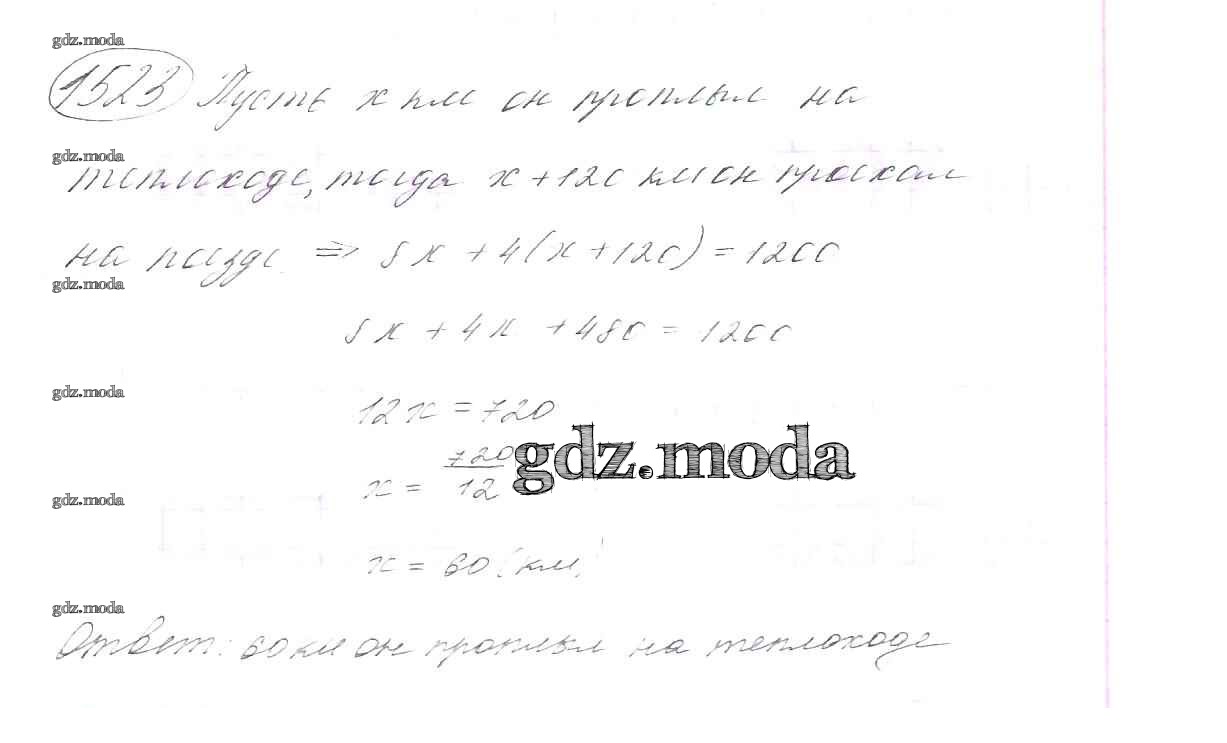 gdz.moda
1523 Пусть x км он проплыл на
gdz.moda
теплоходе, тогда x + 120 км он проехал
на поезде ⇒ 8x + 4(x + 120) = 1200
gdz.moda
8x + 4x + 480 = 1200
gdz.moda
12x = 720
gdz.moda
x = 720/12
gdz.moda
x = 60 (км)
gdz.moda
Ответ: 60 км он проплыл на теплоходе